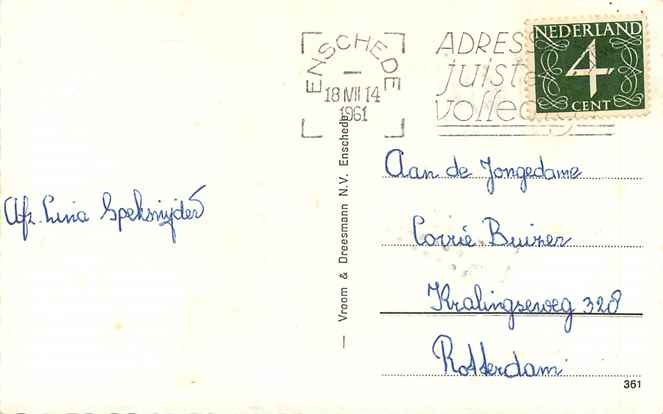 ENSCHEDE
18 VII 14
1961
ADRESS
juiste
volled
NEDERLAND
4
CENT
Afz. Lina Speksnijder
— Vroom & Dreesmann N.V. Enschede
Aan de Jongedame
Corrie Buizer
Kralingseweg 328
Rotterdam
361